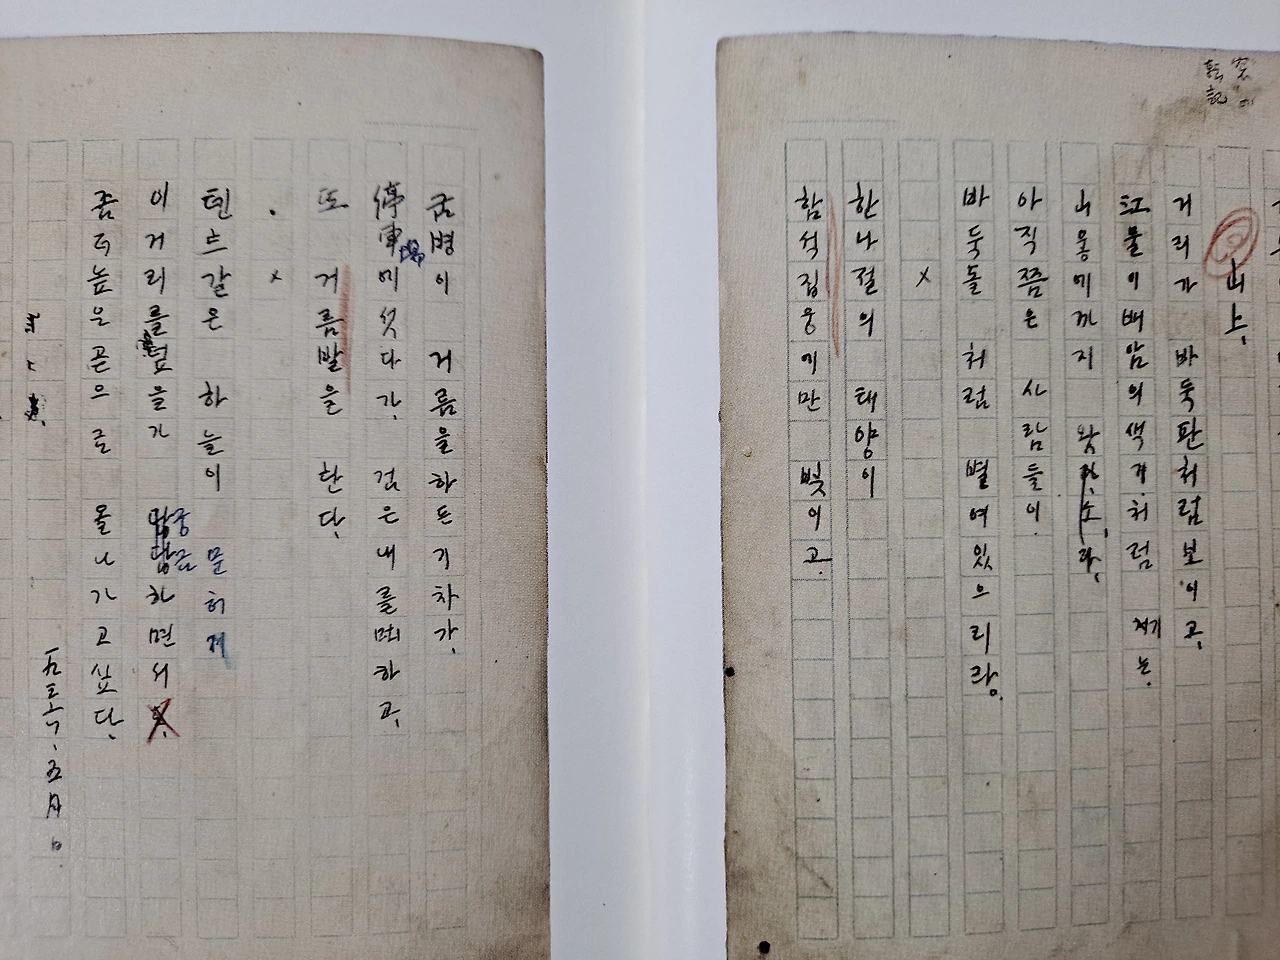 山上.
거리가 바둑판처럼보이고,
江물이배암의색기처럼 기는.
山웋에까지 왓다.
아직쯤은 사람들이.
바둑돌 처럼 별여있으리라.
×
한나절의 태양이
함석집웅에만 빛이고.
굼벙이 거름을하든기차가,
停車場에섯다가, 검은내를吐하고,
또 거름발을 한다,
· ×
텐트같은 하늘이 문허저
이거리를덮을가 궁금하면서
좀더높은곧으로 올나가고싶다,
一九三六、五月 日.